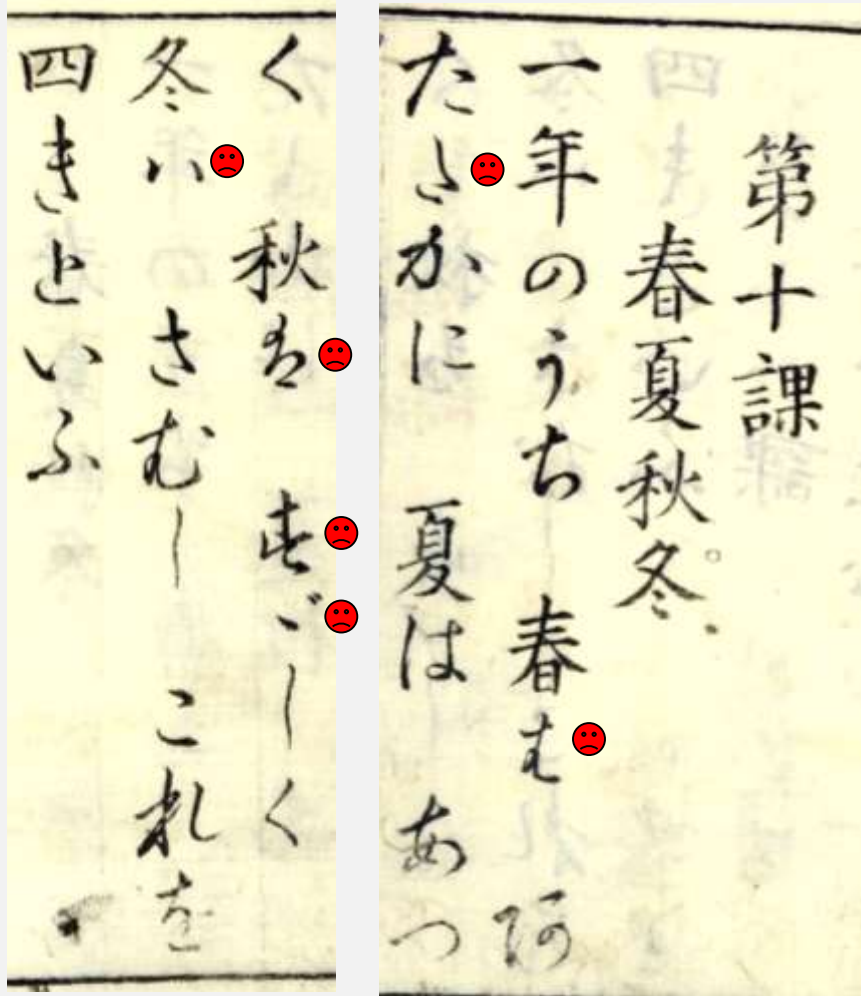 第十課
春夏秋冬。
一年のうち 春は あ
たたかに 夏は あつ
く 秋は すゞしく
冬ハ さむし これを
四きといふ